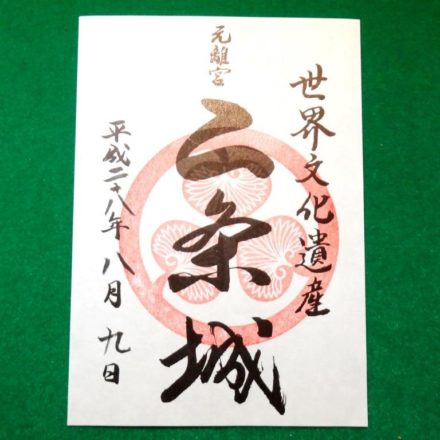 世界文化遺産
元離宮
二条城
平成二十八年八月九日